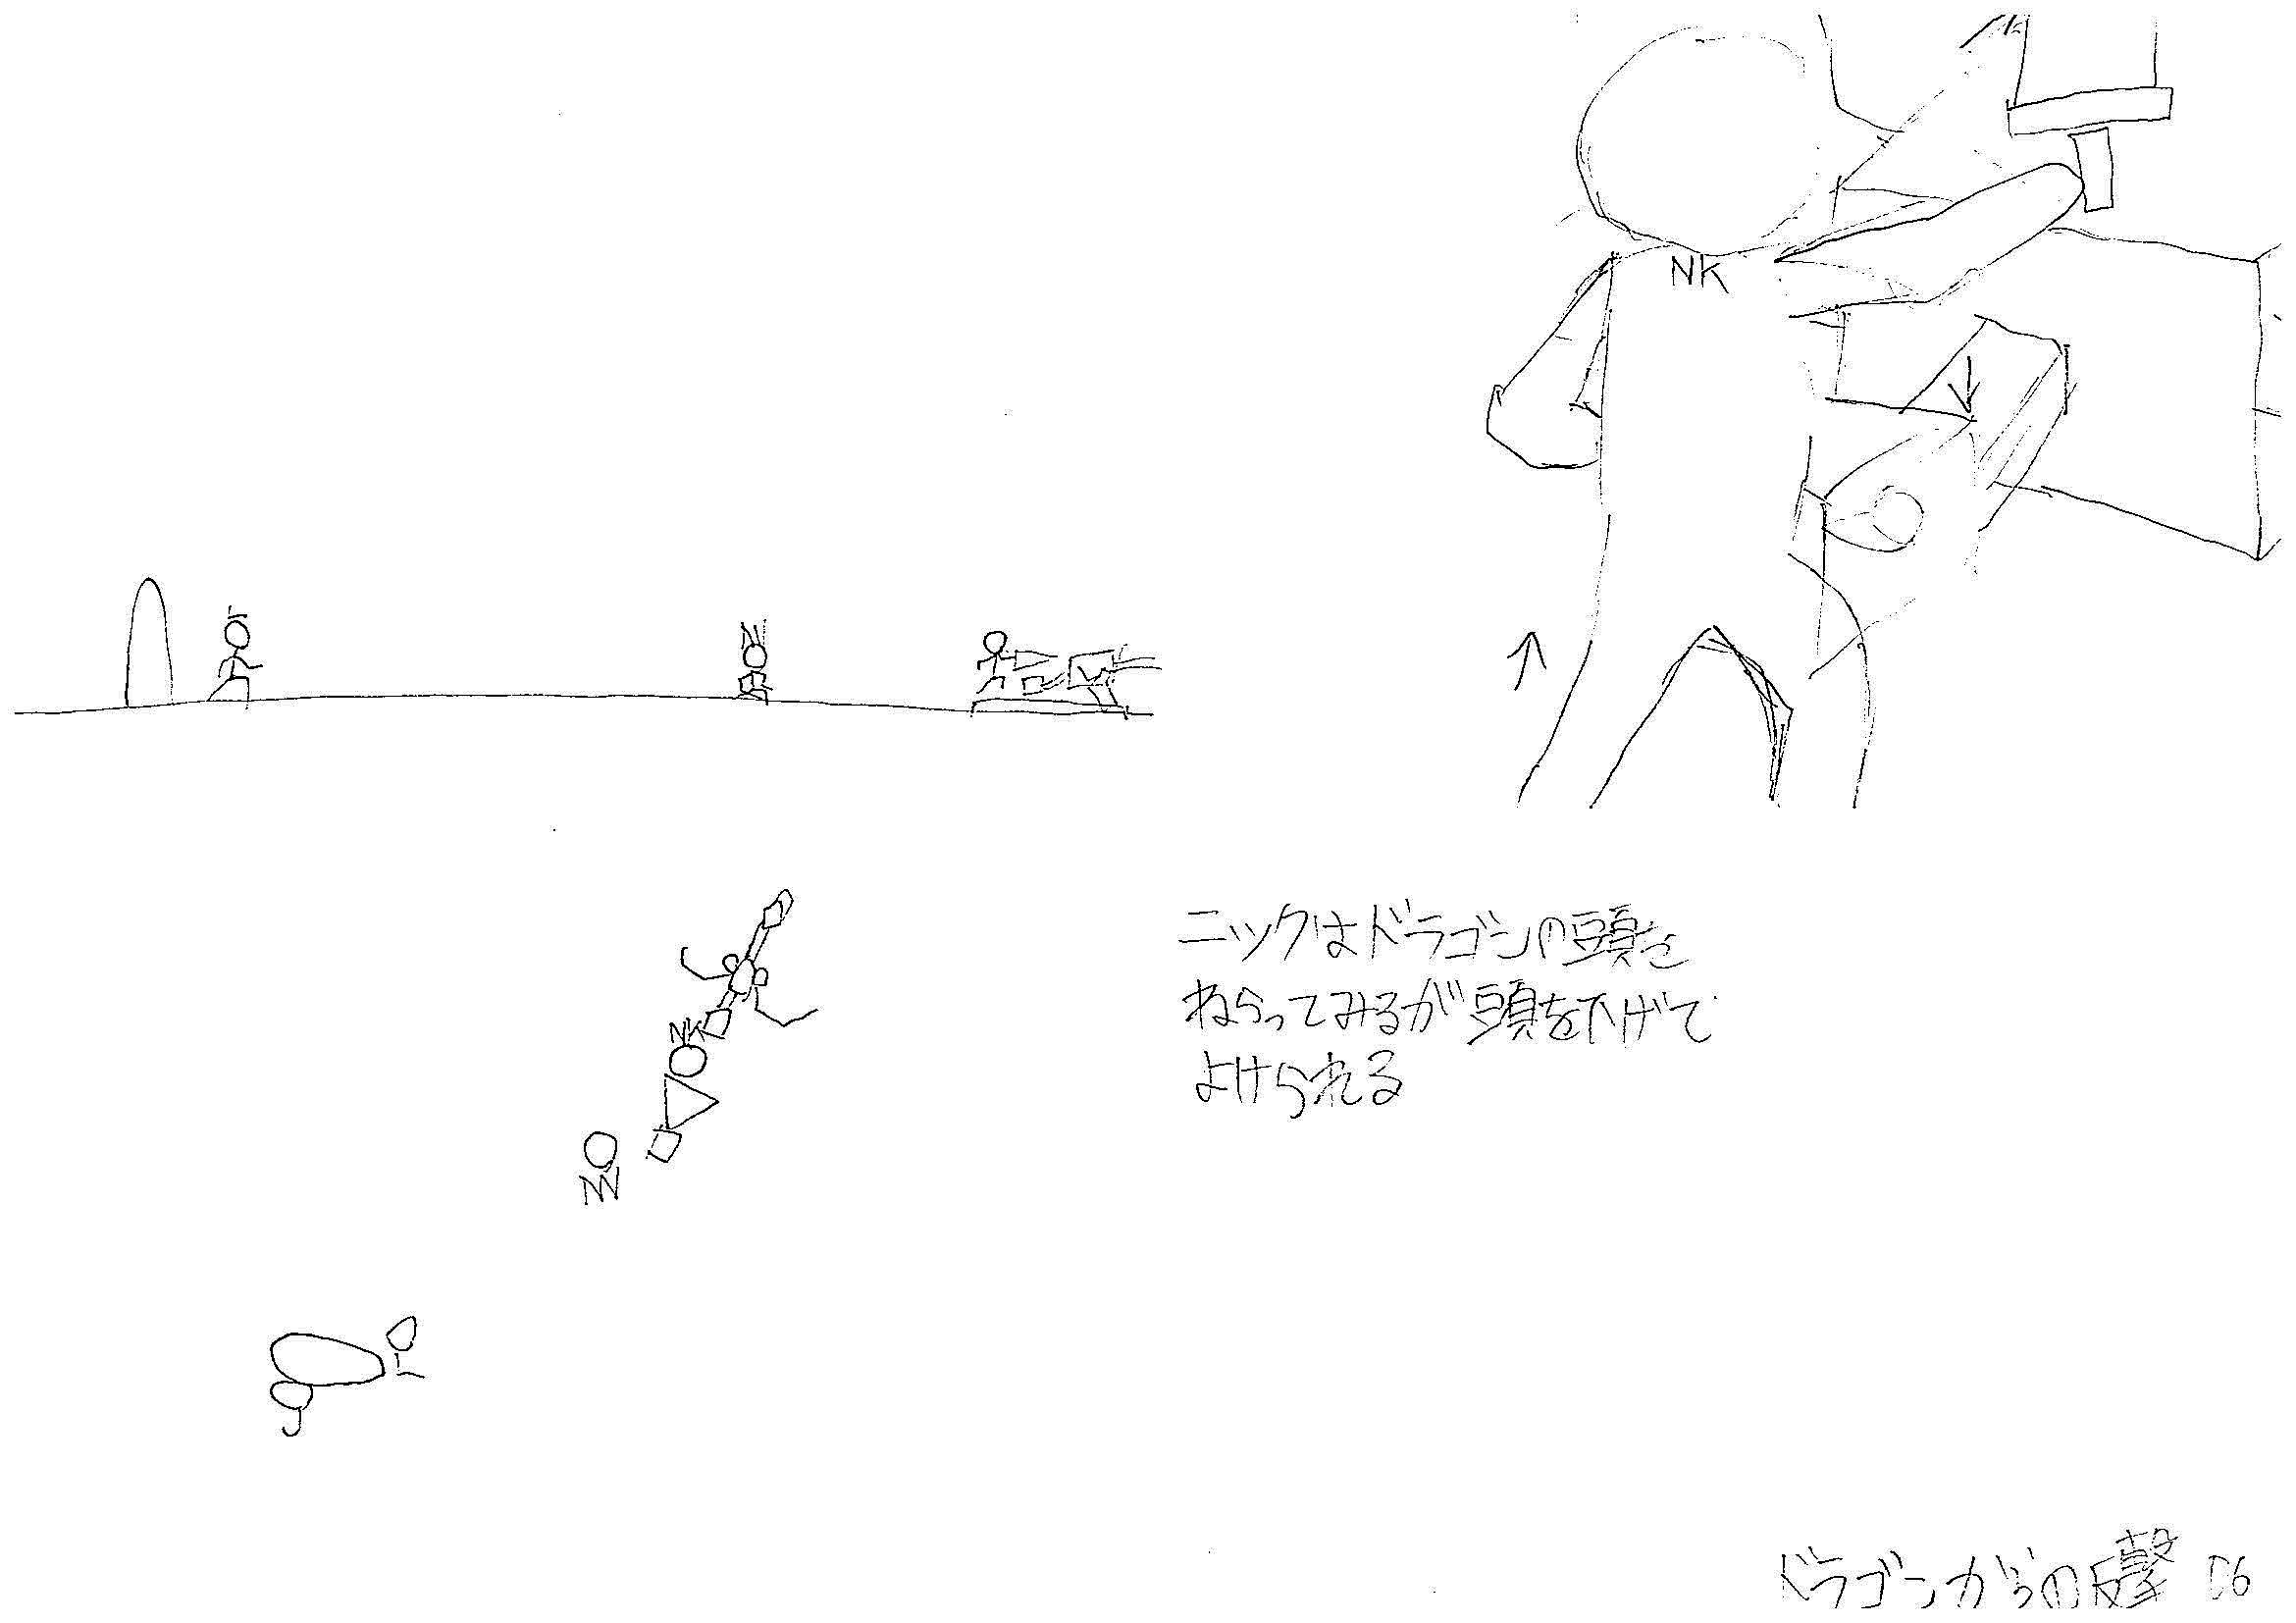 NK
NK
ニックはドラゴンの頭を
ねらってみるが頭を下げて
よけられる
ドラゴンからの反撃 06